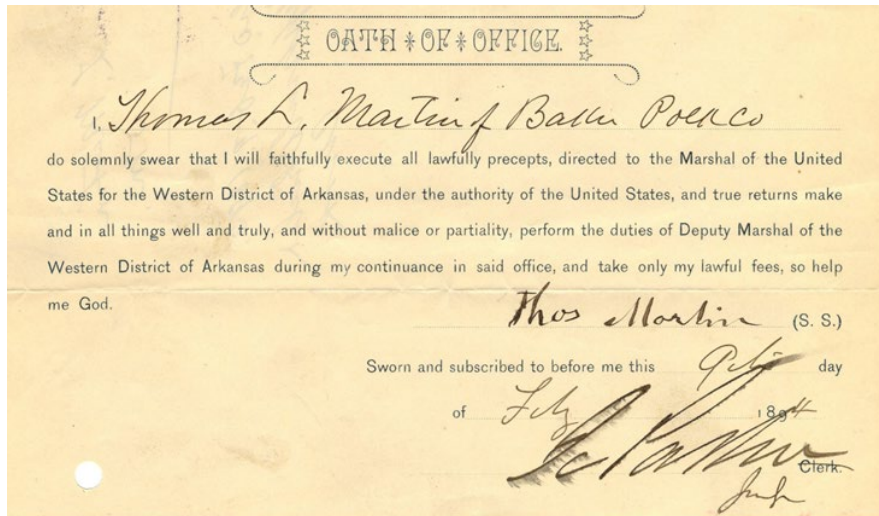 OATH * OF * OFFICE.
I, Thomas L. Martin of Baker Polk Co
do solemnly swear that I will faithfully execute all lawfully precepts, directed to the Marshal of the United
States for the Western District of Arkansas, under the authority of the United States, and true returns make
and in all things well and truly, and without malice or partiality, perform the duties of Deputy Marshal of the
Western District of Arkansas during my continuance in said office, and take only my lawful fees, so help
me God.
Thos Martin (S. S.)
Sworn and subscribed to before me this 9th day
of Feby 1894
Parker Clerk.
Judge